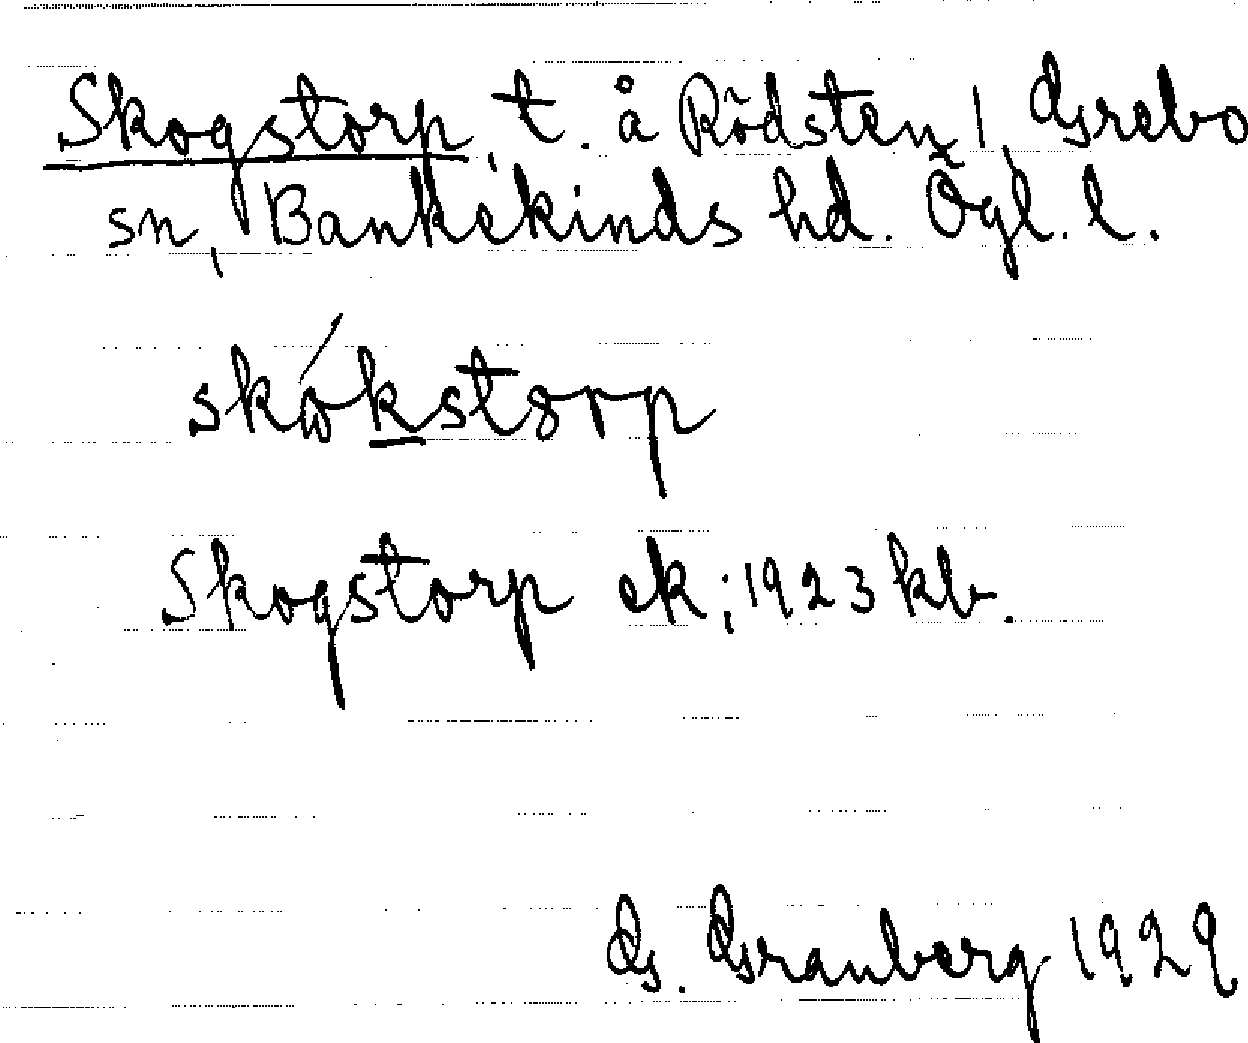 Skogstorp, t. å Rödsten 1, Grebo
sn, Bankekinds hd. Ögl. l.
skókstorp
Skogstorp ek; 1923 kb.
G. Granberg 1929